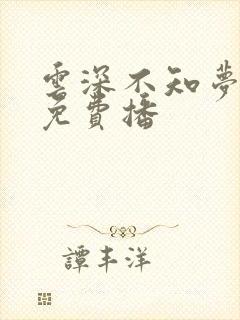 雲深不知夢
免費播
譚丰洋